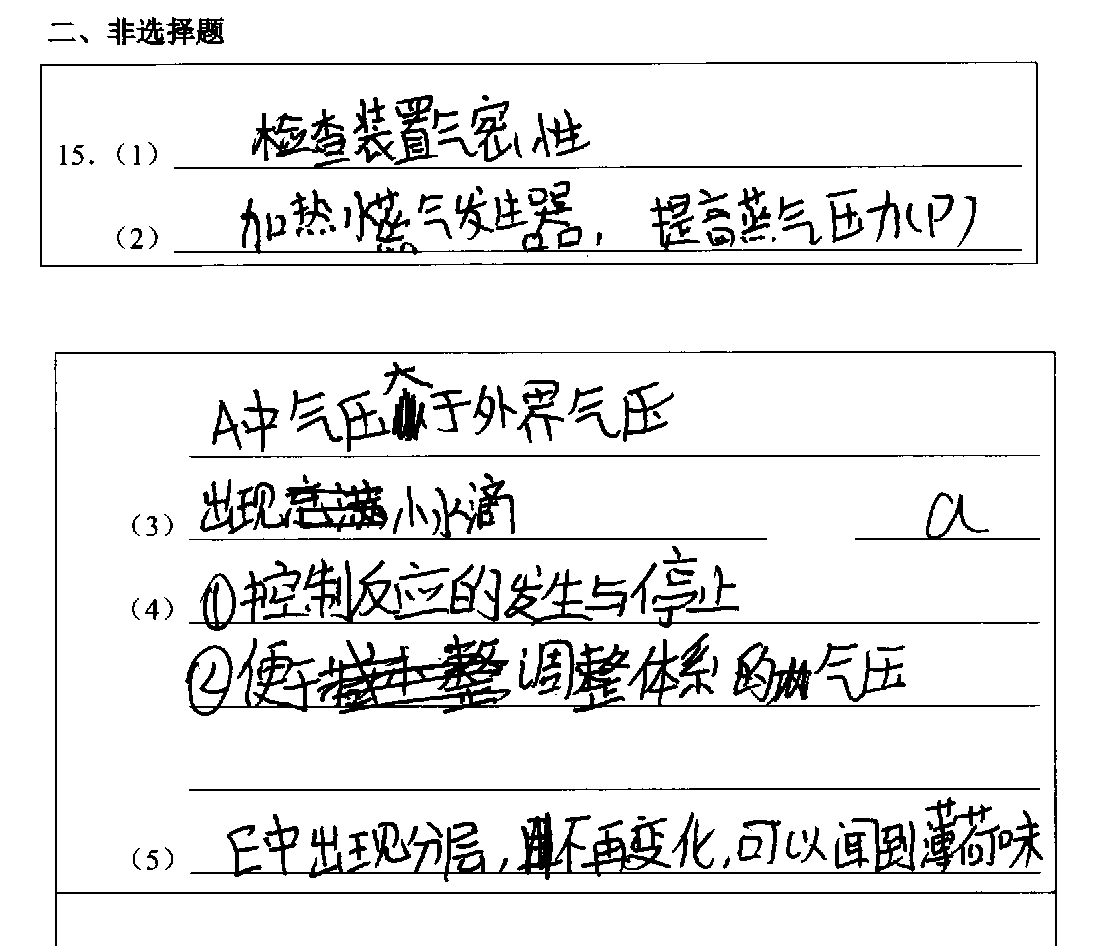 二、非选择题
15.（1） 检查装置气密性
（2） 加热水蒸气发生器，提高蒸气压力(P)
A中气压大于外界气压
（3） 出现小水滴 a
（4） ①控制反应的发生与停止
②便于调整体系的气压
（5） E中出现分层，不再变化，可以闻到薄荷味